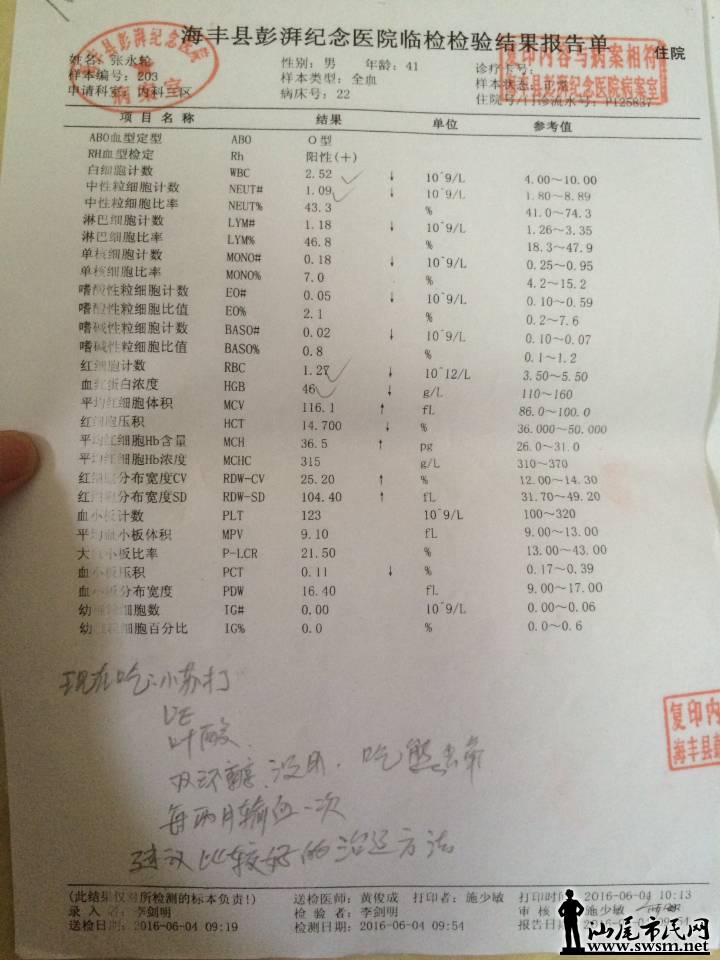 海丰县彭湃纪念医院临检检验结果报告单
住院
姓名: 张永轮 性别: 男 年龄: 41 诊疗卡号:
样本编号: 203 样本类型: 全血 样本状态:
申请科室: 内科三区 病床号: 22 住院号/门诊流水号: P125837
海丰县彭湃纪念医院
病案室
复印内容与病案相符
海丰县彭湃纪念医院病案室
项目名称 结果 单位 参考值
ABO血型定型 ABO O型
RH血型检定 Rh 阳性(+)
白细胞计数 WBC 2.52 ↓ 10^9/L 4.00~10.00
中性粒细胞计数 NEUT# 1.09 ↓ 10^9/L 1.80~8.89
中性粒细胞比率 NEUT% 43.3 % 41.0~74.3
淋巴细胞计数 LYM# 1.18 ↓ 10^9/L 1.26~3.35
淋巴细胞比率 LYM% 46.8 % 18.3~47.9
单核细胞计数 MONO# 0.18 ↓ 10^9/L 0.25~0.95
单核细胞比率 MONO% 7.0 % 4.2~15.2
嗜酸性粒细胞计数 EO# 0.05 ↓ 10^9/L 0.10~0.59
嗜酸性粒细胞比值 EO% 2.1 % 0.2~7.6
嗜碱性粒细胞计数 BASO# 0.02 ↓ 10^9/L 0.10~0.07
嗜碱性粒细胞比值 BASO% 0.8 % 0.1~1.2
红细胞计数 RBC 1.27 ↓ 10^12/L 3.50~5.50
血红蛋白浓度 HGB 46 ↓ g/L 110~160
平均红细胞体积 MCV 116.1 ↑ fL 86.0~100.0
红细胞压积 HCT 14.700 ↓ % 36.000~50.000
平均红细胞Hb含量 MCH 36.5 ↑ pg 26.0~31.0
平均红细胞Hb浓度 MCHC 315 g/L 310~370
红细胞分布宽度CV RDW-CV 25.20 ↑ % 12.00~14.30
红细胞分布宽度SD RDW-SD 104.40 ↑ fL 31.70~49.20
血小板计数 PLT 123 10^9/L 100~320
平均血小板体积 MPV 9.10 fL 9.00~13.00
大血小板比率 P-LCR 21.50 % 13.00~43.00
血小板压积 PCT 0.11 ↓ % 0.17~0.39
血小板分布宽度 PDW 16.40 fL 9.00~17.00
幼稚粒细胞数 IG# 0.00 10^9/L 0.00~0.06
幼稚粒细胞百分比 IG% 0.0 % 0.0~0.6
现在吃:小苏打
VE
叶酸
双环醇,没用. 吃熊去氧
每两月输血一次
建议比较好的治近方法
复印内
海丰县彭
(此结果仅对所检测的标本负责!) 送检医师: 黄俊成 打印者: 施少敏 打印时间: 2016-06-04 10:13
录入者: 李剑明 检验者: 李剑明 审核 施少敏
送检日期: 2016-06-04 09:19 检测日期: 2016-06-04 09:54 报告日期
汕尾市民网
www.swsm.net